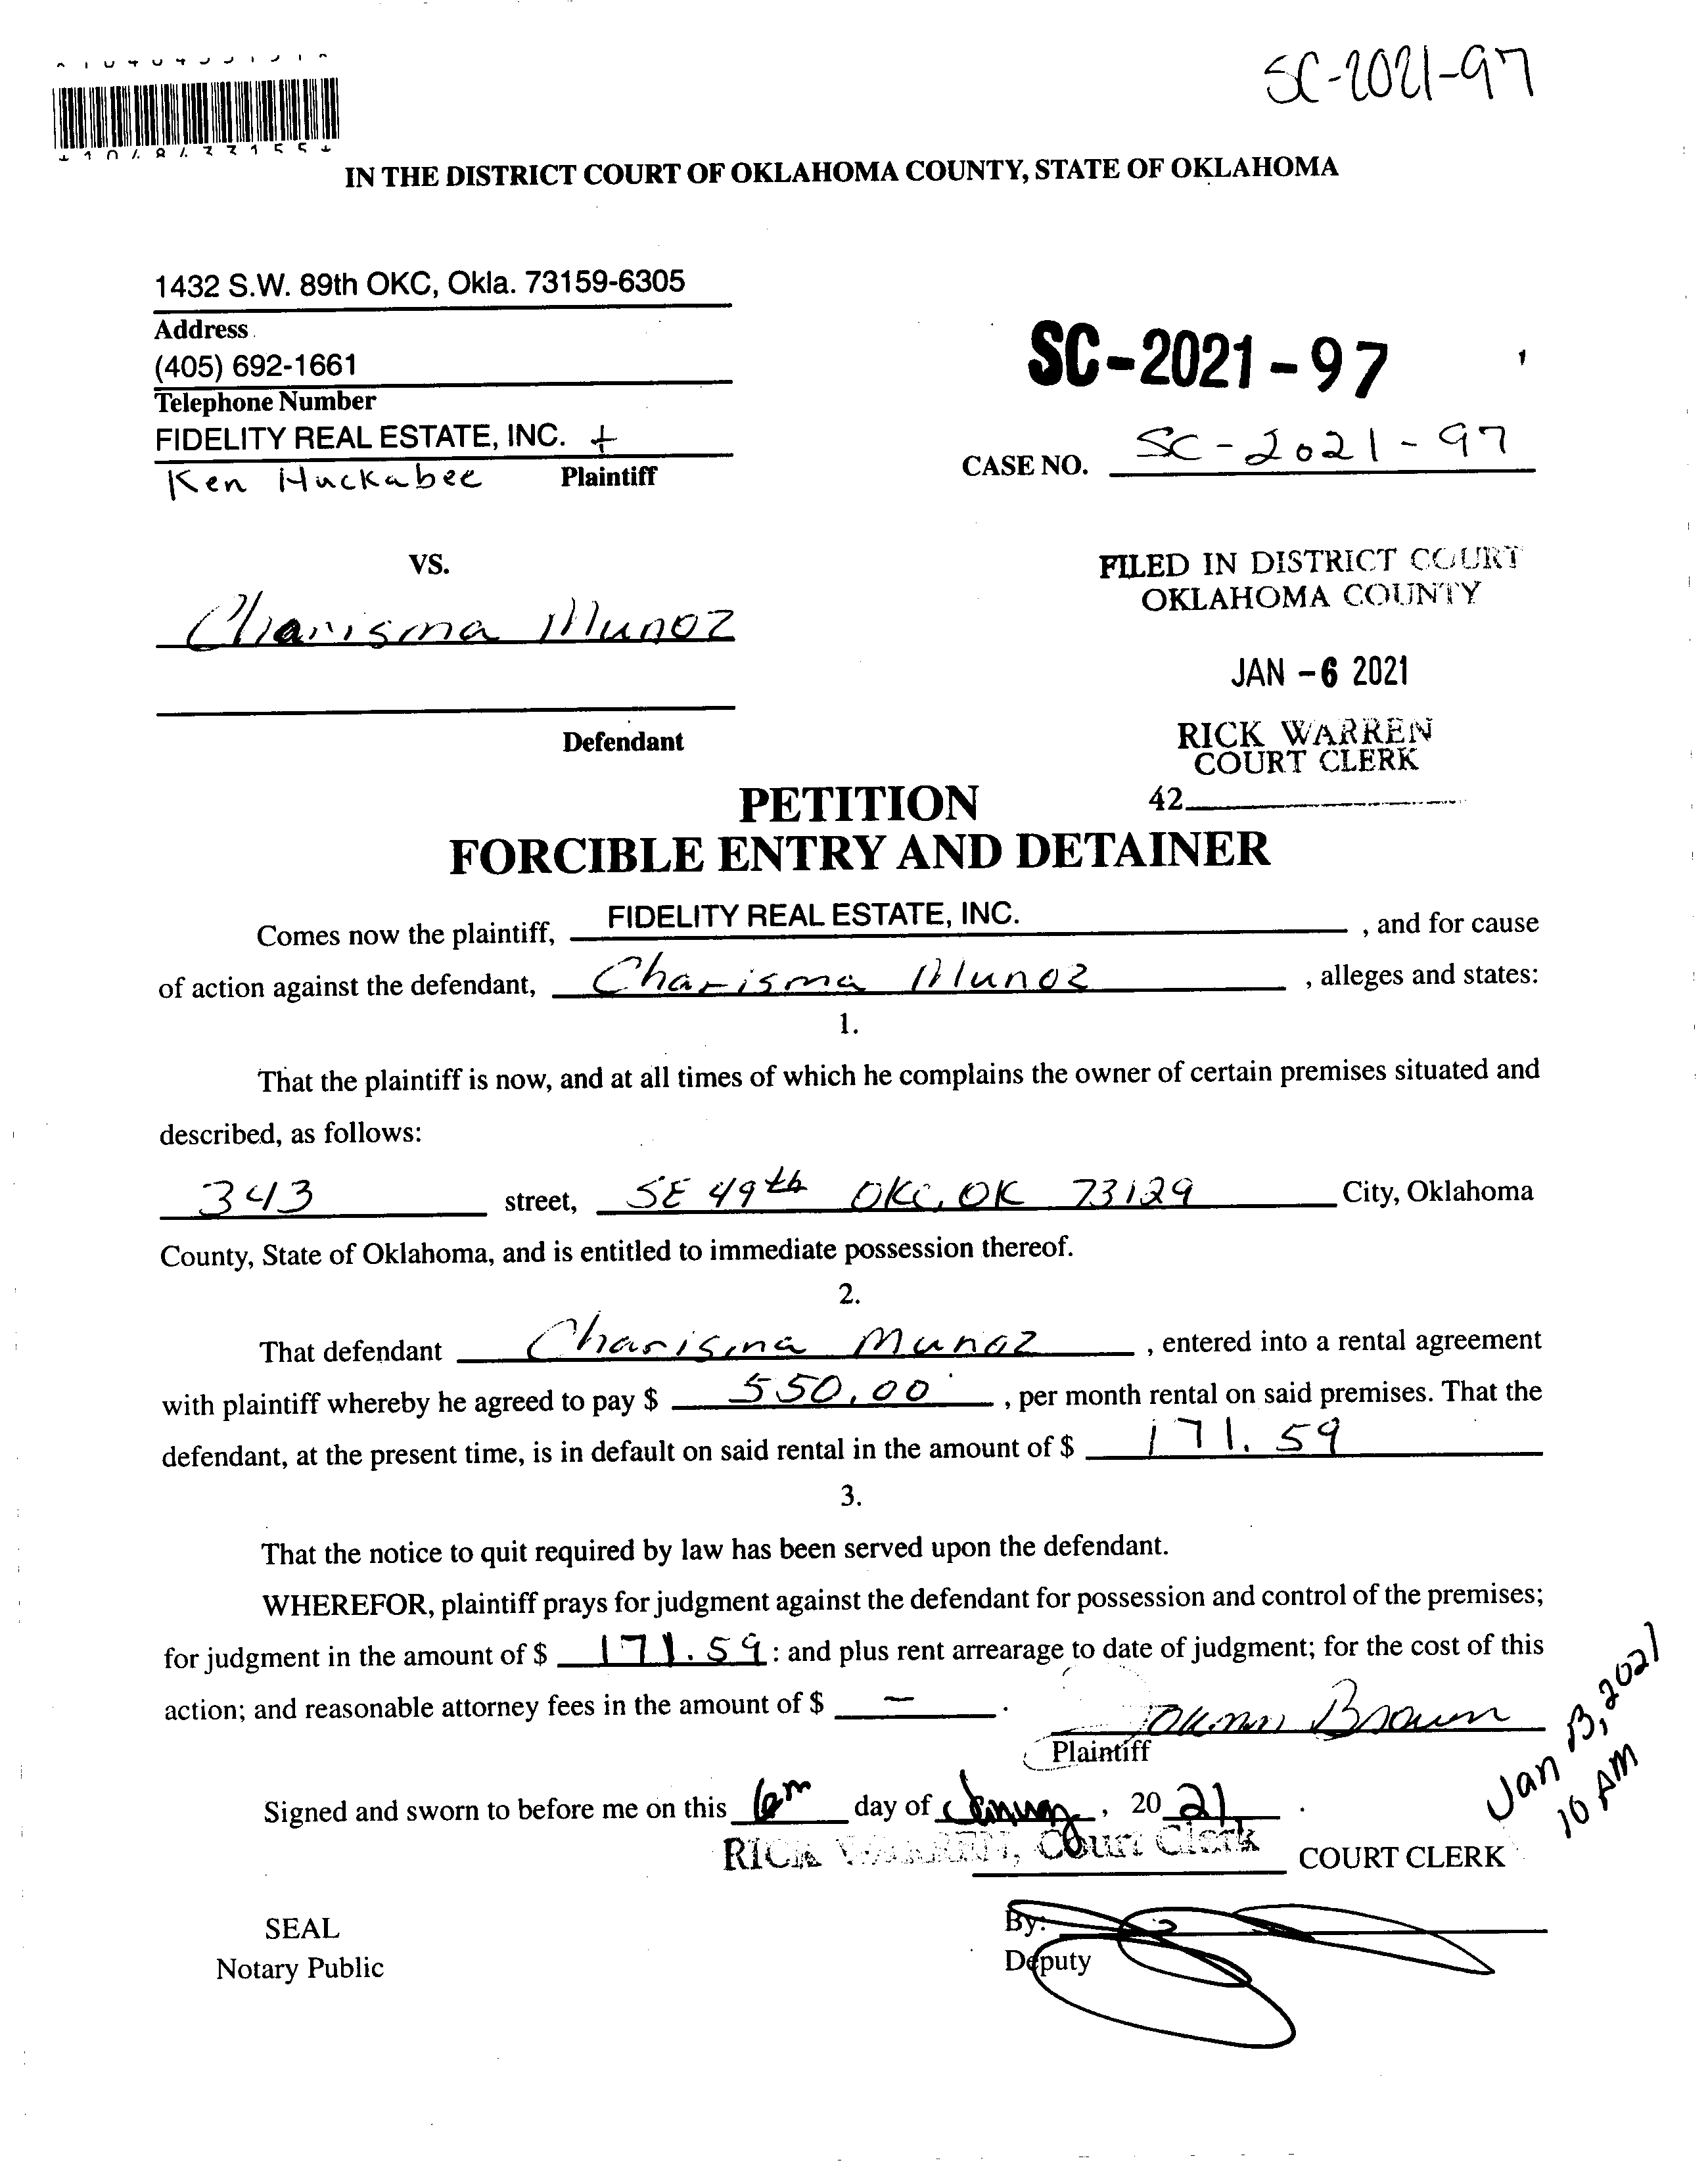 SC-2021-97
IN THE DISTRICT COURT OF OKLAHOMA COUNTY, STATE OF OKLAHOMA
1432 S.W. 89th OKC, Okla. 73159-6305
Address
(405) 692-1661
Telephone Number
FIDELITY REAL ESTATE, INC. +
Ken Huckabee Plaintiff
SC-2021-97
CASE NO. SC-2021-97
VS.
Charisma Munoz
Defendant
FILED IN DISTRICT COURT
OKLAHOMA COUNTY
JAN -6 2021
RICK WARREN
COURT CLERK
42
PETITION
FORCIBLE ENTRY AND DETAINER
Comes now the plaintiff, FIDELITY REAL ESTATE, INC. , and for cause
of action against the defendant, Charisma Munoz , alleges and states:
1.
That the plaintiff is now, and at all times of which he complains the owner of certain premises situated and
described, as follows:
343 street, SE 49th OKC, OK 73129 City, Oklahoma
County, State of Oklahoma, and is entitled to immediate possession thereof.
2.
That defendant Charisma Munoz , entered into a rental agreement
with plaintiff whereby he agreed to pay $ 550.00 , per month rental on said premises. That the
defendant, at the present time, is in default on said rental in the amount of $ 171.59
3.
That the notice to quit required by law has been served upon the defendant.
WHEREFOR, plaintiff prays for judgment against the defendant for possession and control of the premises;
for judgment in the amount of $ 171.59 : and plus rent arrearage to date of judgment; for the cost of this
action; and reasonable attorney fees in the amount of $ — .
Brown
Plaintiff
Jan 13, 2021
10 AM
Signed and sworn to before me on this 6th day of January , 20 21 .
RICK WARREN, Court Clerk COURT CLERK
SEAL
Notary Public
By:
Deputy